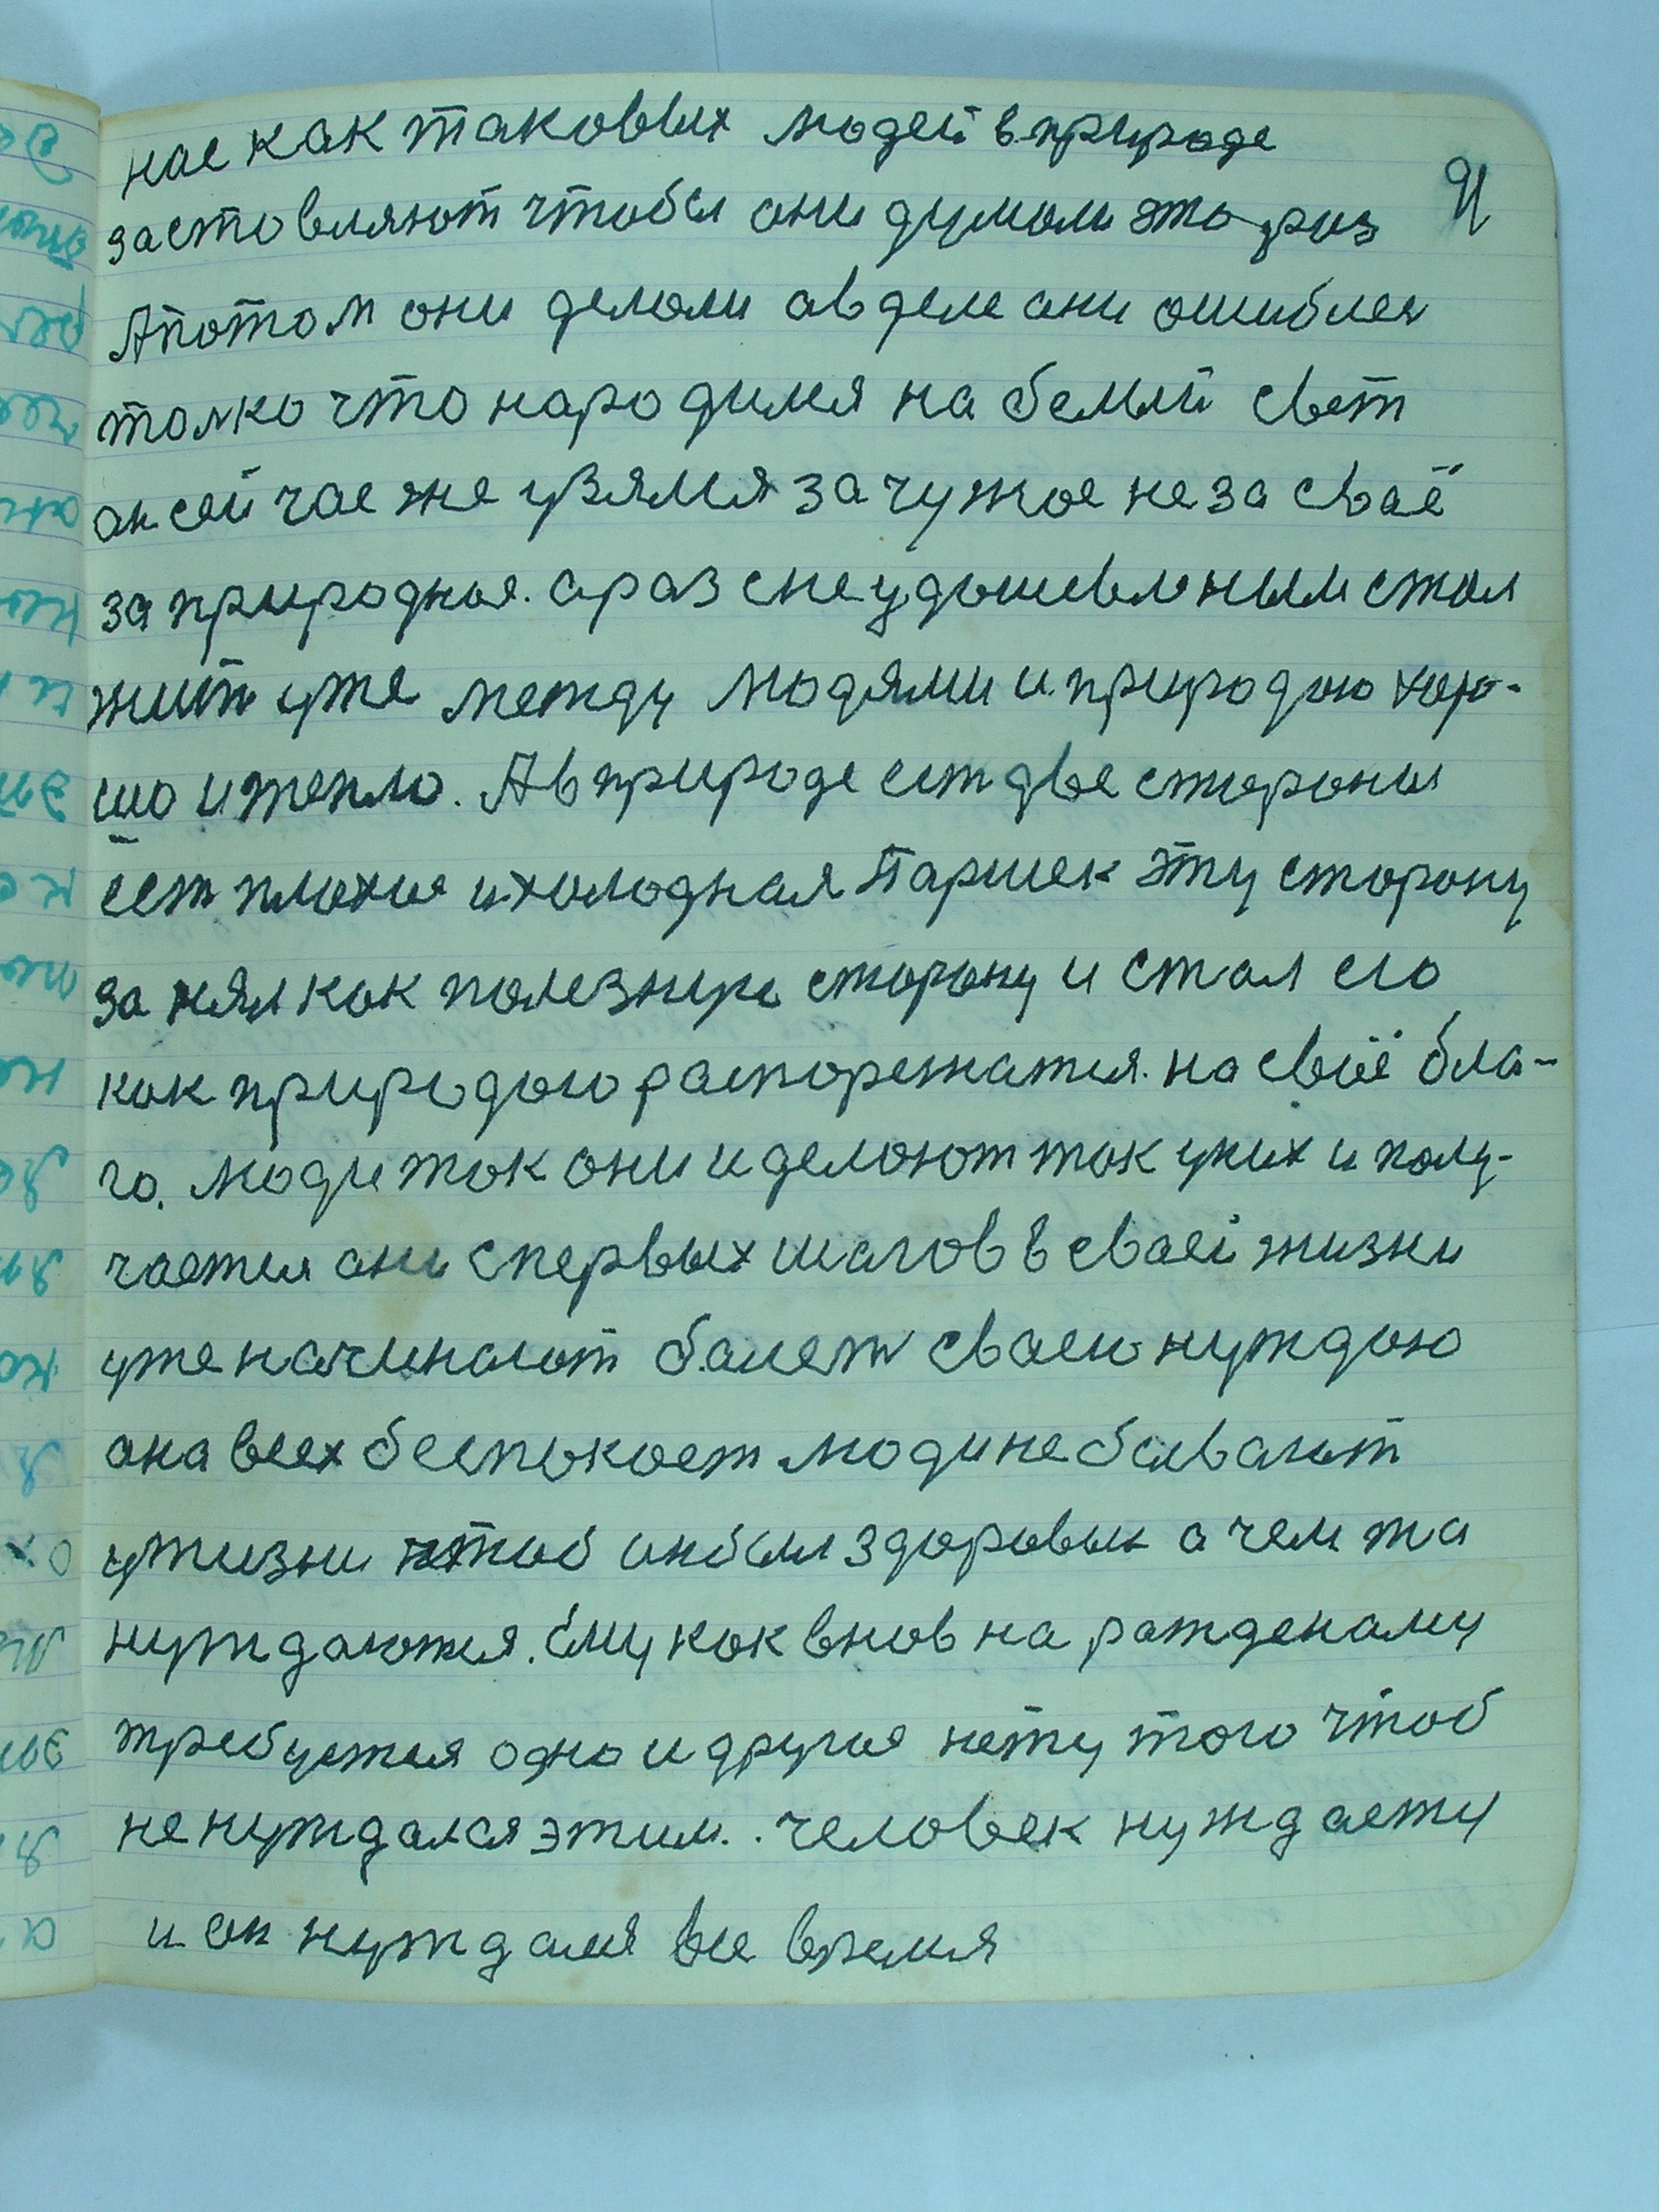 нас как таковых людей в природе
заставляют чтобы они думали это раз
А потом они делали а в деле они ошиблися
толко что народился на белый свет
он сейчас же узялся за чужое не за сваё
за природнае. а раз с неудошевленым стал
жить уже между людями и природаю хоро-
шо и тепло. А в природе ест две стороны
ест плохие и холодная Паршек эту сторону
за нял как полезную сторону и стал его
как природою распорежатся. на своё бла-
го. Люди так они и делают так у них и полу-
чается они с первых шагов в сваей жизни
уже начинают балеть сваею нуждою
ана всех беспокоет люди не бывают
у жизни чтоб они были здоровые а чем та
нуждаются. Ему как вновь на рожденаму
требуется одно и другие нету того чтоб
не нуждался этим. человек нуждаету
и он нуждался все время